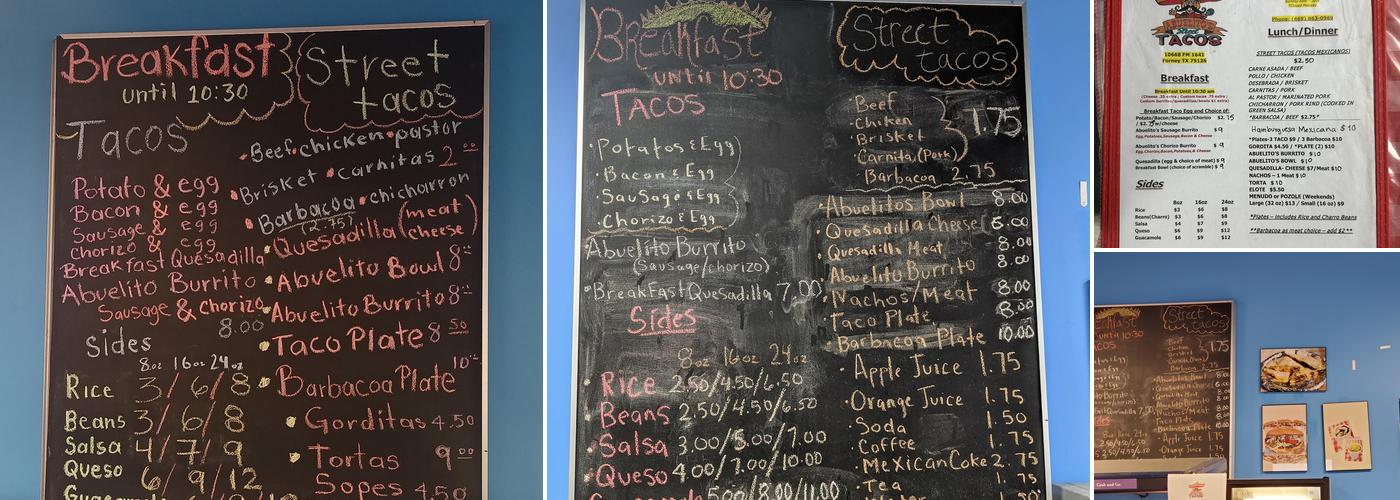 Breakfast
until 10:30
Tacos
Potato & egg
Bacon & egg
Sausage & egg
Chorizo & egg
Breakfast Quesadilla
Abuelito Burrito
Sausage & Chorizo
8.00
Sides
8oz 16oz 24oz
Rice 3/6/8
Beans 3/6/8
Salsa 4/7/9
Queso 6/9/12
Street
tacos
Beef • chicken • pastor
• Brisket • Carnitas 2.00
• Barbacoa • chicharron
(2.75)
• Quesadilla (meat cheese)
• Abuelito Bowl 8
• Abuelito Burrito 8
• Taco Plate 8.50
• Barbacoa Plate 10
• Gorditas 4.50
• Tortas 9.00
Sopes 4.50
Breakfast
until 10:30
Tacos
• Potatos & Egg
• Bacon & Egg
• Sausage & Egg
• Chorizo & Egg
Abuelito Burrito
(Sausage/chorizo)
• Breakfast Quesadilla 7.00
Sides
8oz 16oz 24oz
• Rice 2.50/4.50/6.50
• Beans 2.50/4.50/6.50
• Salsa 3.00/5.00/7.00
• Queso 4.00/7.00/10.00
5.00/8.00/11.00
Street
tacos
• Beef
• Chiken
• Brisket
• Carnida (Pork)
1.75
• Barbacoa 2.75
• Abuelitos Bowl 8.00
• Quesadilla Cheese 6.00
• Quesadilla Meat 8.00
• Abuelito Burrito 8.00
• Nachos/Meat 8.00
• Taco Plate 8.00
• Barbacoa Plate 10.00
• Apple Juice 1.75
• Orange Juice 1.75
• Soda 1.50
Coffee 1.75
• Mexican Coke 2.75
• Tea
TACOS
10668 FM 1641
Forney TX 75126
Breakfast
Breakfast Until 10:30 am
Breakfast Taco Egg and Choice of:
Potato/Bacon/Sausage/Chorizo $2.75
w/cheese
Abuelito's Sausage Burrito $9
Egg,Potatoes,Sausage,Bacon & Cheese
Abuelito's Chorizo Burrito $9
Egg,Chorizo,Potatoes,Bacon & Cheese
Quesadilla (egg & choice of meat) $9
Breakfast Bowl (choice of scramble) $9
Sides
8oz 16oz 24oz
Rice $3 $6 $8
Beans(Charro) $3 $6 $8
Salsa $4 $7 $9
Queso $6 $9 $12
Guacamole $6 $9 $12
Phone: (469) 863-0969
Lunch/Dinner
STREET TACOS (TACOS MEXICANOS)
$2.50
CARNE ASADA / BEEF
POLLO / CHICKEN
DESEBRADA / BRISKET
CARNITAS / PORK
AL PASTOR / MARINATED PORK
CHICHARRON / PORK RIND (COOKED IN
GREEN SALSA)
*BARBACOA / BEEF $2.75*
Hamburguesa Mexicana $10
*Plates-3 TACO $9 / 3 Barbacoa $10
GORDITA $4.50 / *PLATE (2) $10
ABUELITO'S BURRITO $10
ABUELITO'S BOWL $10
QUESADILLA- CHEESE $7/Meat $10
NACHOS – 1 Meat $10
TORTA $10
ELOTE $5.50
MENUDO or POZOLE (Weekends)
Large (32 oz) $13 / Small (16 oz) $9
*Plates – Includes Rice and Charro Beans
**Barbacoa as meat choice – add $2**
Street
tacos
1.75
Apple Juice 1.75
Orange Juice 1.75
Cash and Go